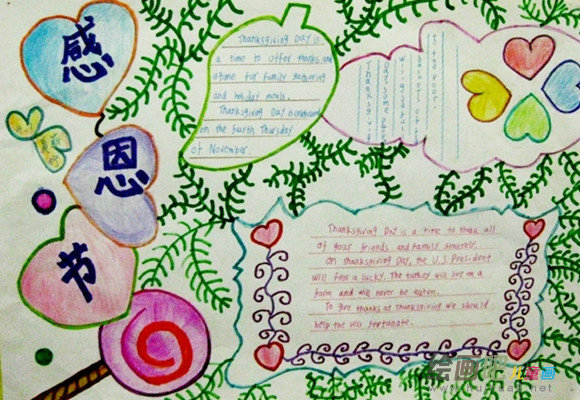 感
恩
节
Thanksgiving Day is
a time to offer thanks and
a time for family gathering
and holiday meals.
Thanksgiving Day is celebrated
on the fourth Thursday
of November.
Thanksgiving
Day some people
will
baskets of
the poor.
Thanksgiving Day is a time to thank all
of your friends and family sincerely.
On Thanksgiving Day, the U.S President
will free a lucky. The turkey will live on a
farm and will never be eaten.
To give thanks at Thanksgiving we should
help the less fortunate.
绘画吧 儿童画